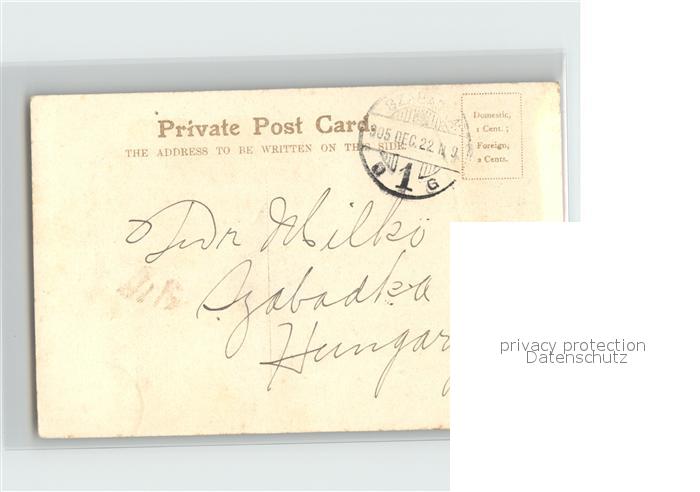 Private Post Card.
THE ADDRESS TO BE WRITTEN ON THIS SIDE.
Domestic,
1 Cent.;
Foreign,
2 Cents.
905 DEC. 22 N 9
1
G
Dr Milkó
Szabadka
Hungary
privacy protection
Datenschutz